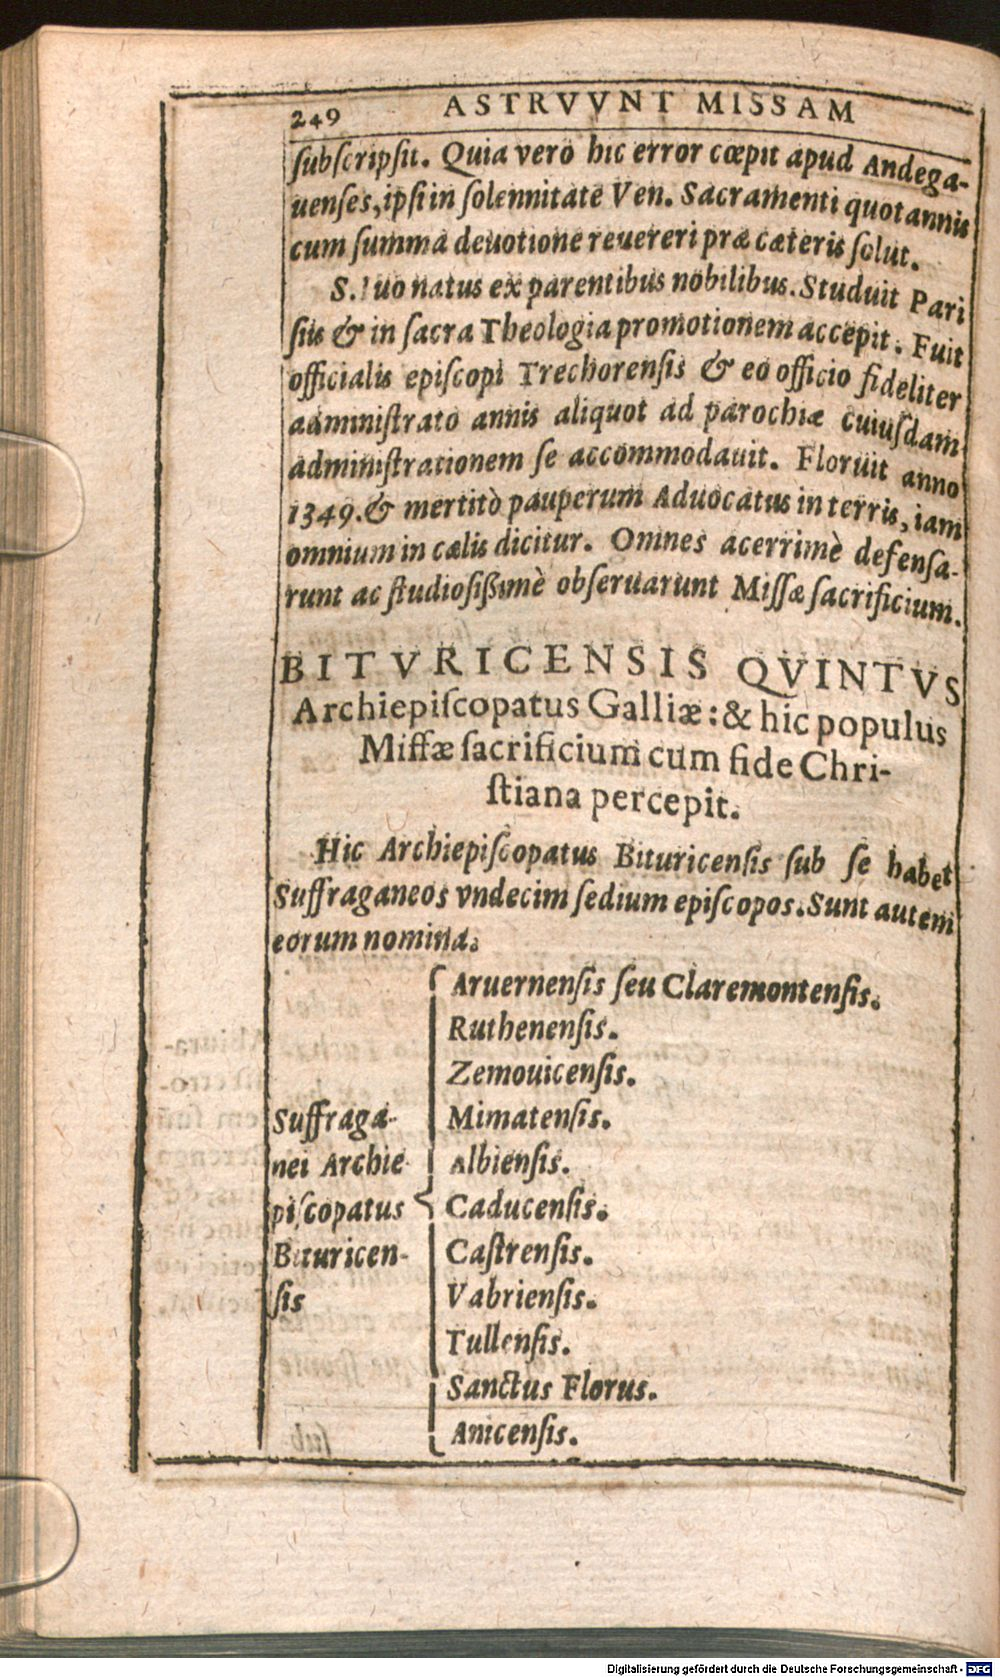 249 ASTRVVNT MISSAM
ſubſcripſit. Quia vero hic error cœpit apud Andega-
uenſes, ipſi in ſolennitate Ven. Sacramenti quotannis
cum ſumma deuotione reuereri præ cæteris ſolut.
S. Iuo natus ex parentibus nobilibus. Studuit Pari
ſiis & in ſacra Theologia promotionem accepit. Fuit
officialis epiſcopi Trechorenſis & eo officio fideliter
adminiſtrato annis aliquot ad parochiæ cuiuſdam
adminiſtrationem ſe accommodauit. Floruit anno
1349. & mertitò pauperum Aduocatus in terris, iam
omnium in cælis dicitur. Omnes acerrimè defenſa-
runt ac ſtudioſißimè obſeruarunt Miſſæ ſacrificium.
BITVRICENSIS QVINTVS
Archiepiſcopatus Galliæ: & hic populus
Miſſæ ſacrificium cum fide Chri-
ſtiana percepit.
Hic Archiepiſcopatus Bituricenſis ſub ſe habet
Suffraganeos vndecim ſedium epiſcopos. Sunt autem
eorum nomina.
Aruernenſis ſeu Claremontenſis.
Ruthenenſis.
Zemouicenſis.
Suffraga- Mimatenſis.
nei Archie Albienſis.
piſcopatus Caducenſis.
Bituricen- Caſtrenſis.
ſis Vabrienſis.
Tullenſis.
Sanctus Florus.
Anicenſis.
Digitalisierung gefördert durch die Deutsche Forschungsgemeinschaft - DFG